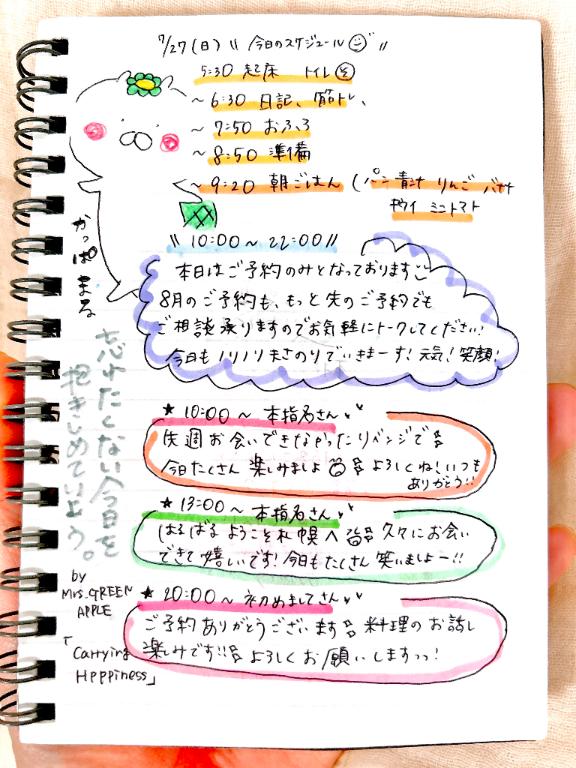 7/27(日) \\ 今日のスケジュール //
5:30 起床 トイレ
~6:30 日記、筋トレ、
~7:50 おふろ
~8:50 準備
~9:20 朝ごはん (パン 青汁 りんご バナナ
キウイ ミニトマト
かっぱまる
\\ 10:00~22:00 //
本日はご予約のみとなっております
8月のご予約も、もっと先のご予約でも
ご相談承りますのでお気軽にトークしてください!
今日もノリノリまさのりでいきまーす!元気!笑顔!
忘れたくない今日を
抱きしめていよう。
by
Mrs.GREEN
APPLE
「Carrying
Happiness」
★ 10:00~ 本指名さん
先週お会いできなかったリベンジで
今日たくさん楽しみましょ よろしくね!いつも
ありがとう!!
★ 13:00~ 本指名さん
はるばるようこそ札幌へ 久々にお会い
できて嬉しいです!今日もたくさん笑いましょー!!
★ 20:00~ 初めましてさん
ご予約ありがとうございます 料理のお話し
楽しみです!! よろしくお願いしますっっ!